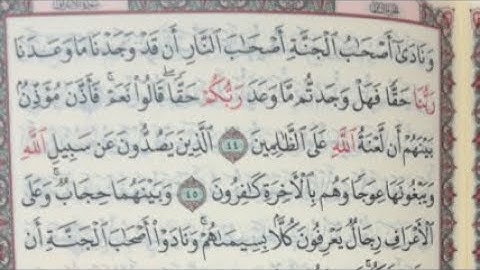 وَنَادَىٰٓ أَصْحَٰبُ ٱلْجَنَّةِ أَصْحَٰبَ ٱلنَّارِ أَن قَدْ وَجَدْنَا مَا وَعَدَنَا
رَبُّنَا حَقًّا فَهَلْ وَجَدتُّم مَّا وَعَدَ رَبُّكُمْ حَقًّا ۖ قَالُوا۟ نَعَمْ ۚ فَأَذَّنَ مُؤَذِّنٌۢ
بَيْنَهُمْ أَن لَّعْنَةُ ٱللَّهِ عَلَى ٱلظَّٰلِمِينَ ٤٤ ٱلَّذِينَ يَصُدُّونَ عَن سَبِيلِ ٱللَّهِ
وَيَبْغُونَهَا عِوَجًا وَهُم بِٱلْءَاخِرَةِ كَٰفِرُونَ ٤٥ وَبَيْنَهُمَا حِجَابٌ ۚ وَعَلَى
ٱلْأَعْرَافِ رِجَالٌ يَعْرِفُونَ كُلًّۢا بِسِيمَىٰهُمْ ۚ وَنَادَوْا۟ أَصْحَٰبَ ٱلْجَنَّةِ أَن